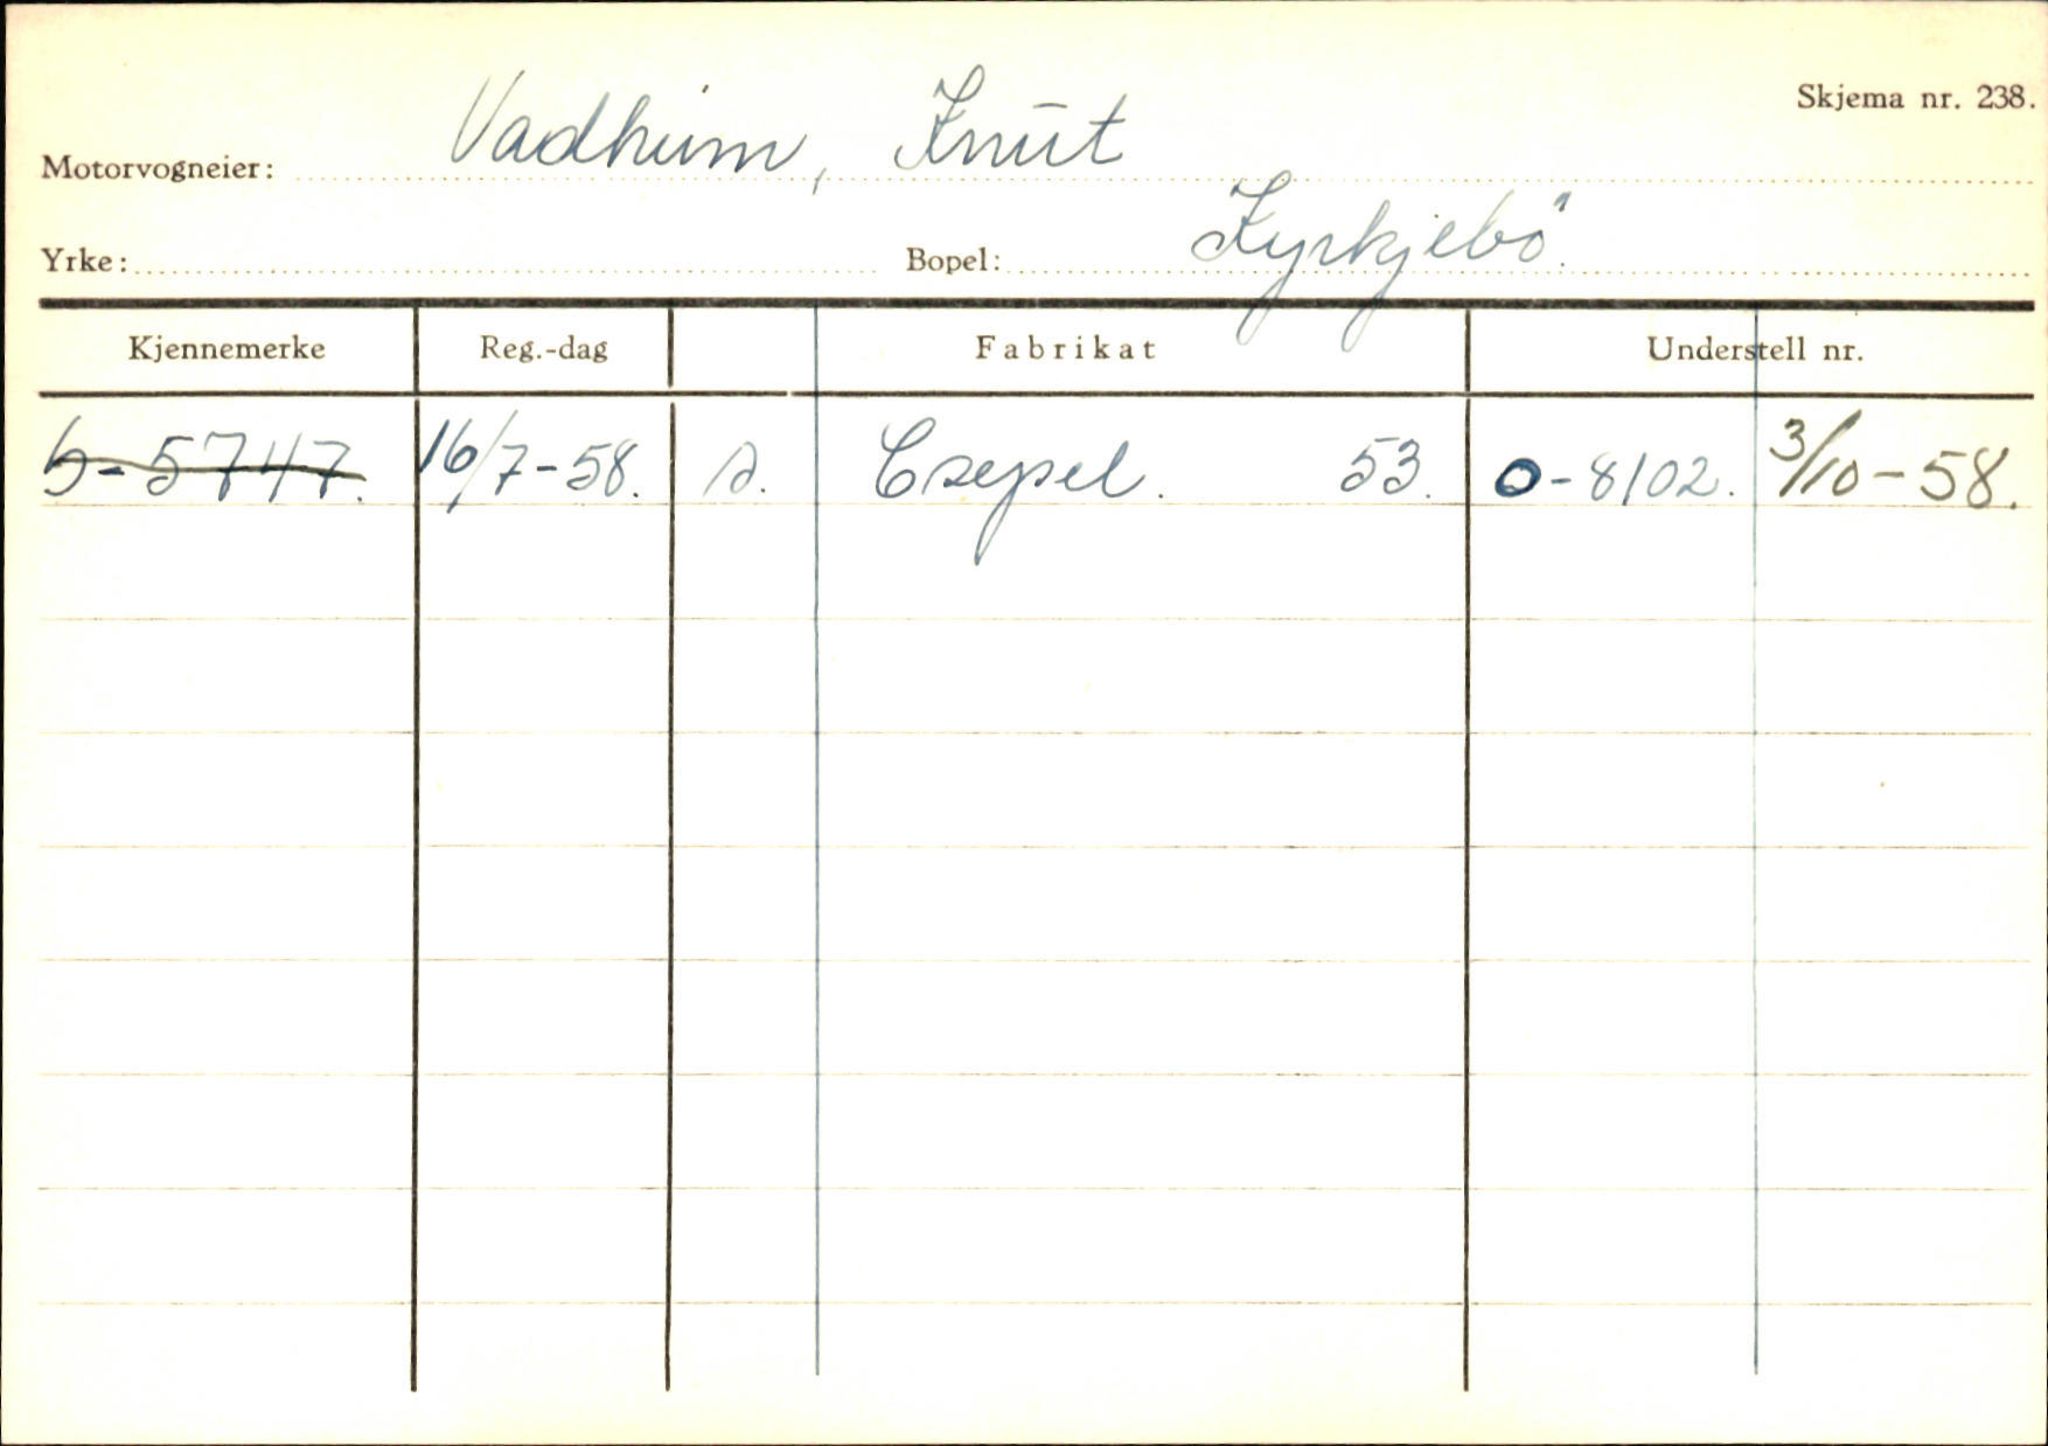 Skjema nr. 238.
Motorvogneier: Vadheim, Knut
Yrke: Bopel: Kyrkjebö.
Kjennemerke Reg.-dag Fabrikat Understell nr.
S-5747. 16/7-58. s. Csepel. 53. O-8102. 3/10-58.